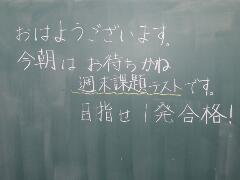 おはようございます。
今朝は お待ちかね
週末課題テストです。
目指せ 1発合格!